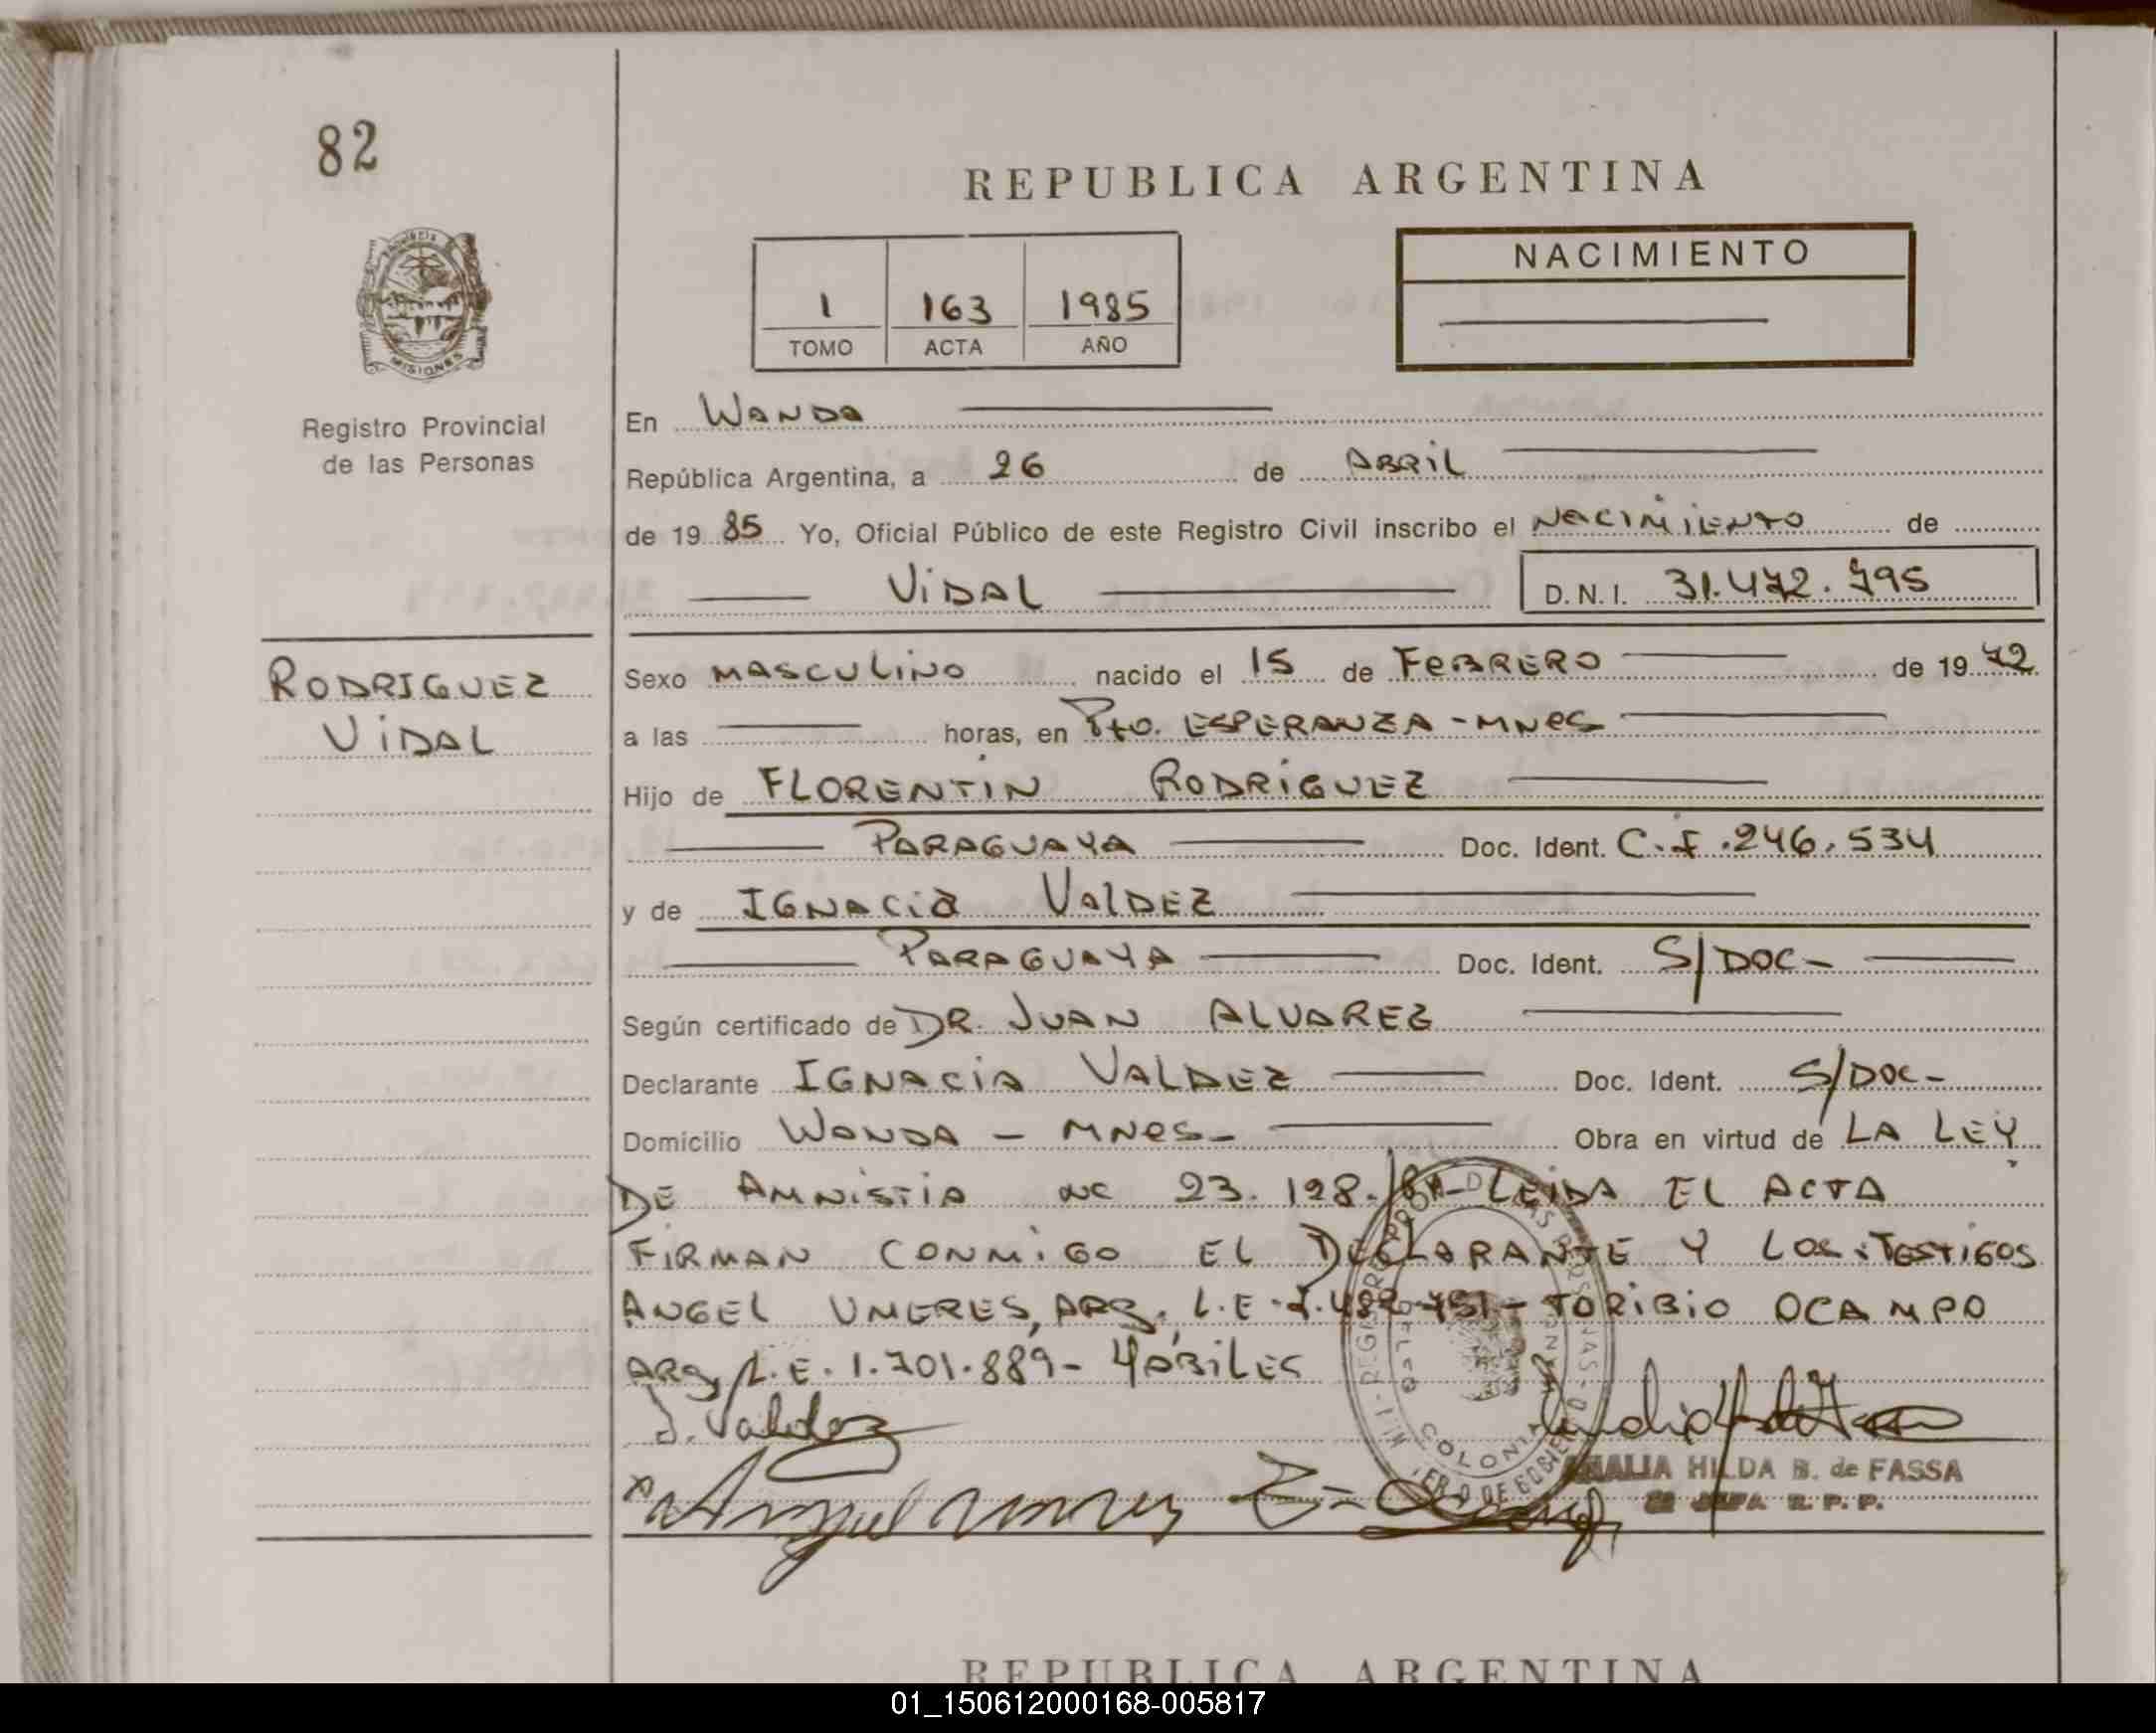 82
REPUBLICA ARGENTINA
PROVINCIA
MISIONES
Registro Provincial
de las Personas
1 163 1985
TOMO ACTA AÑO
NACIMIENTO
En WANDA
República Argentina, a 26 de ABRIL
de 19 85 Yo, Oficial Público de este Registro Civil inscribo el NACIMIENTO de
VIDAL D.N.I. 31.472.795
RODRIGUEZ
VIDAL
Sexo MASCULINO nacido el 15 de FEBRERO de 19 72
a las horas, en Pto. ESPERANZA - MNES
Hijo de FLORENTIN RODRIGUEZ
PARAGUAYA Doc. Ident. C.I. 246.534
y de IGNACIA VALDEZ
PARAGUAYA Doc. Ident. S/DOC-
Según certificado de DR. JUAN ALVAREZ
Declarante IGNACIA VALDEZ Doc. Ident. S/DOC-
Domicilio WANDA - MNES- Obra en virtud de LA LEY
DE AMNISTIA 23.128. LEIDA EL ACTA
FIRMAN CONMIGO EL DECLARANTE Y LOS TESTIGOS
ANGEL UMERES, ARG. L.E. - TORIBIO OCAMPO
ARG, L.E. 1.701.889- HÁBILES
I. Valdez
AMALIA HILDA B. de FASSA
JEFA R. P. P.
COLONIA WANDA
REPUBLICA ARGENTINA
01_150612000168-005817